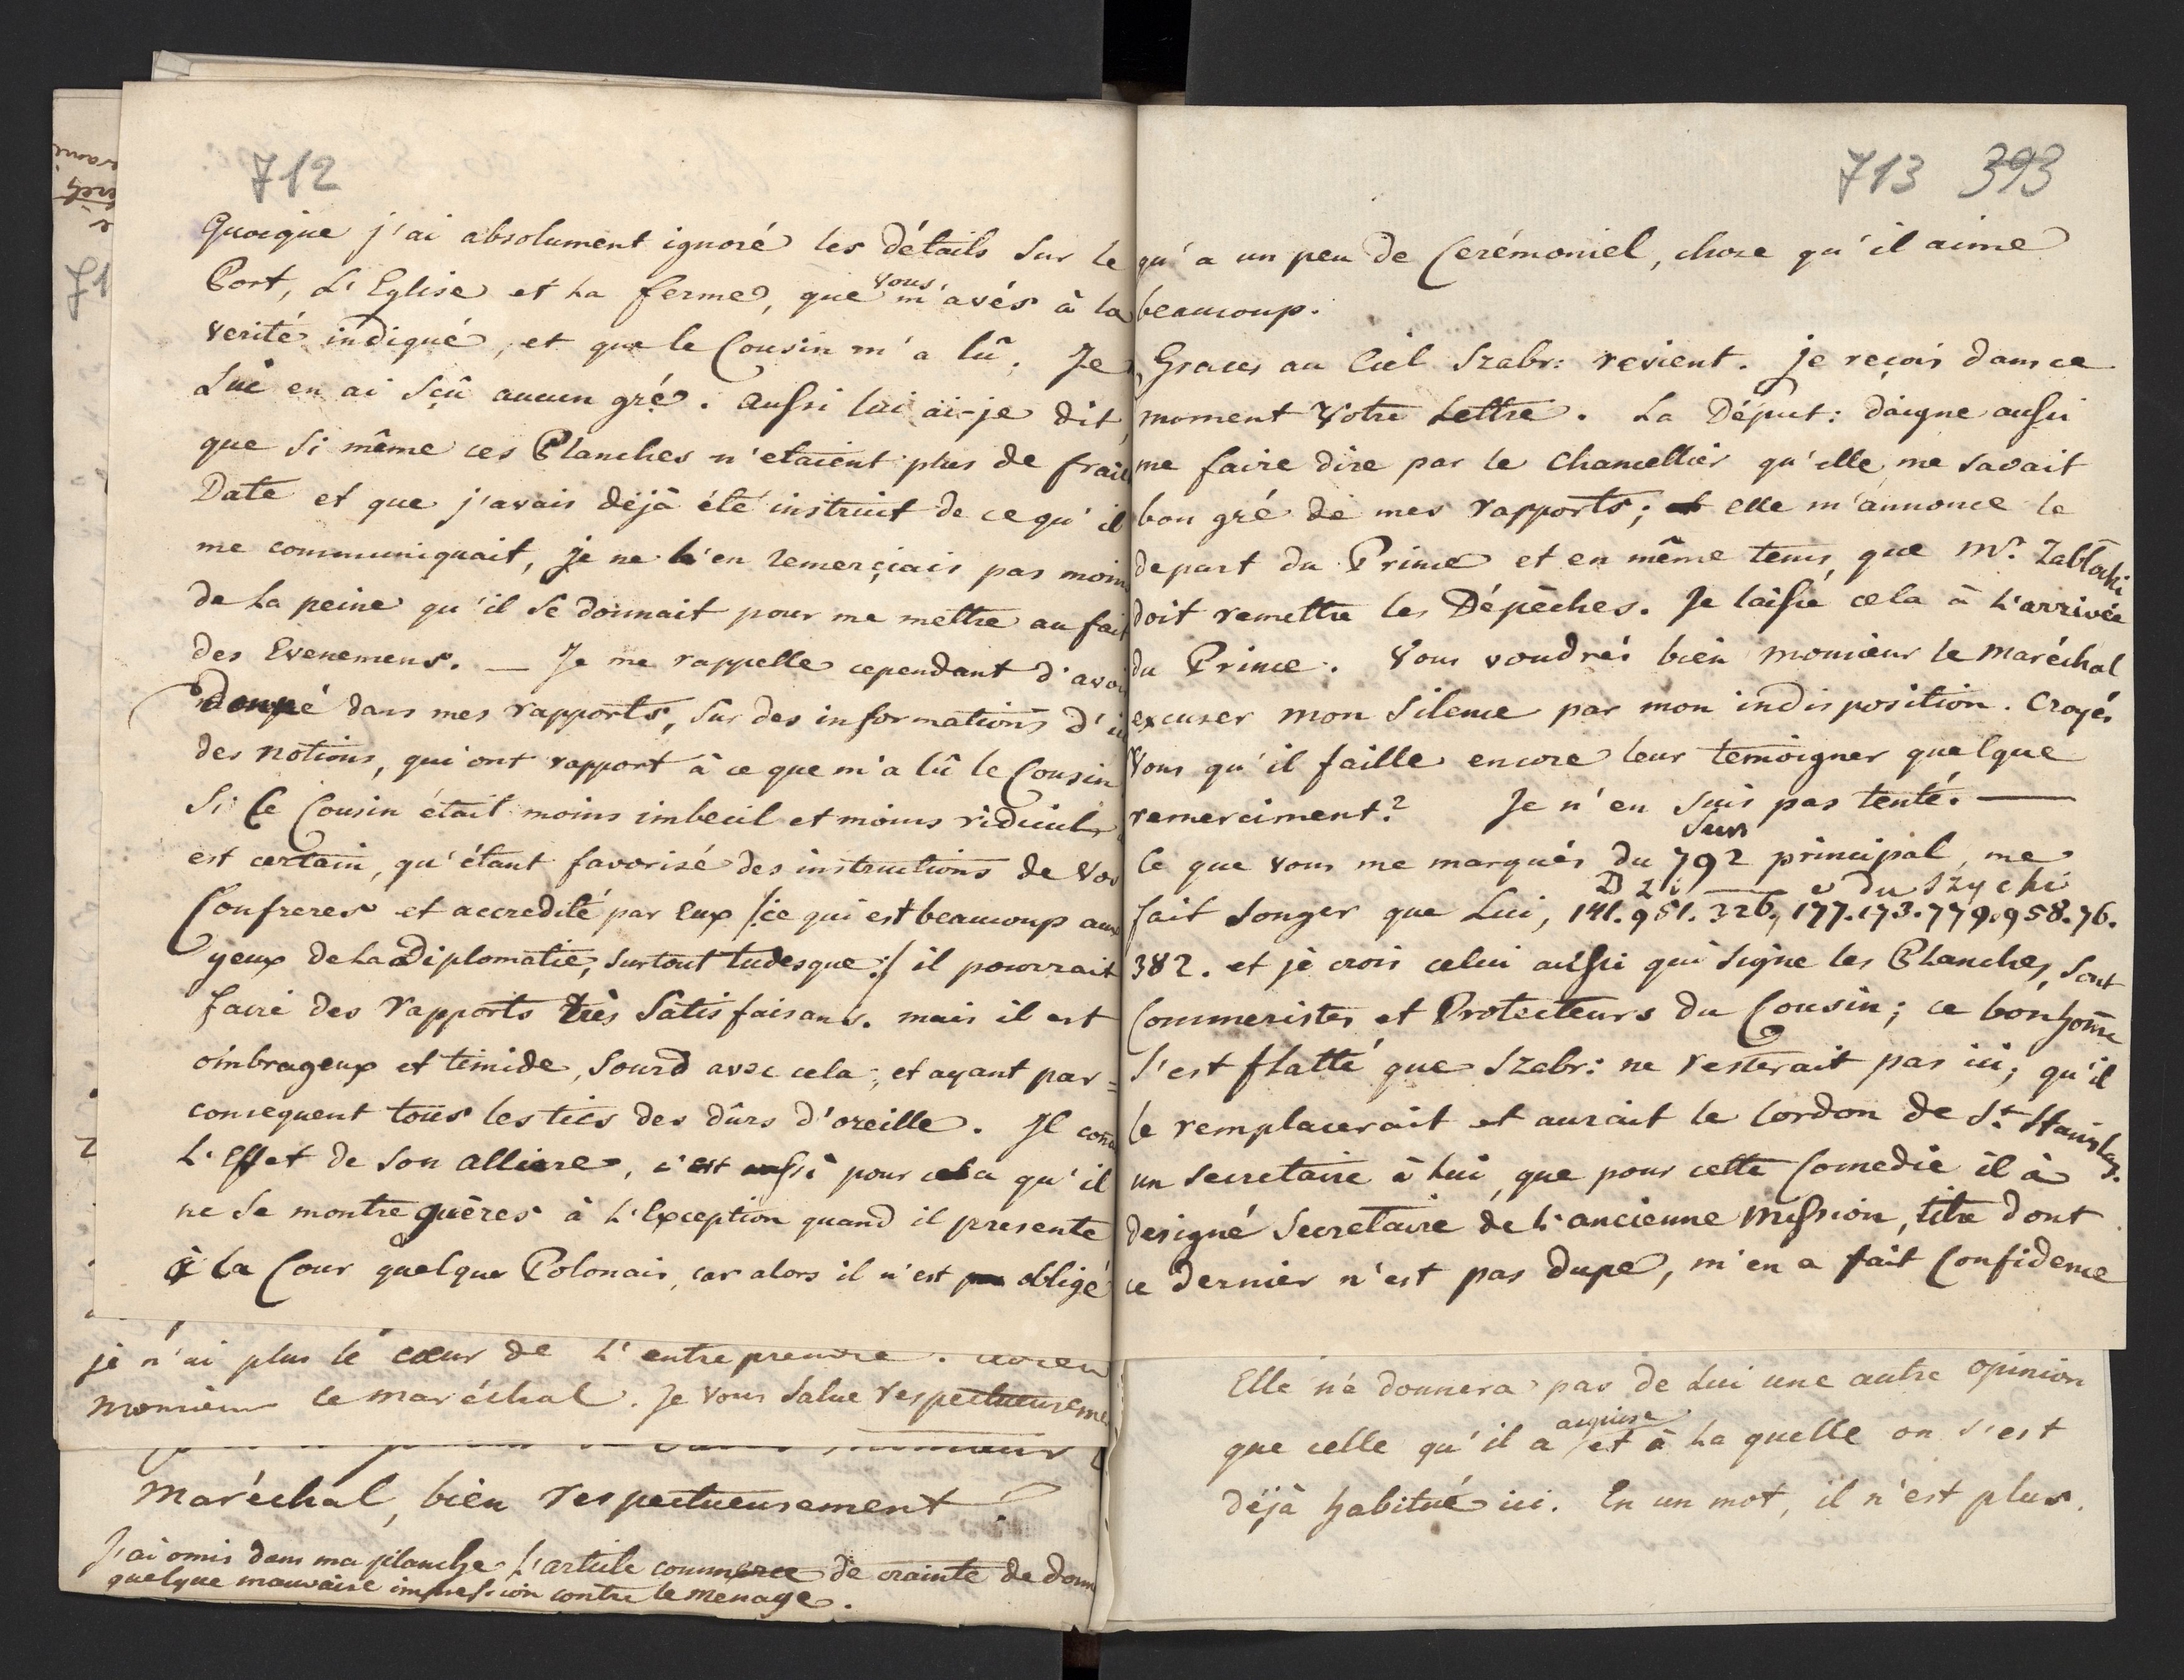 712
Quoique j'ai absolument ignoré les détails sur le
Port, L'Eglise et La ferme, que vous m'avés à la
verité indiqué, et que le Cousin m'a lû. Je
Lui en ai sçû aucun gré. Aussi lui ai-je dit,
que si même ces Planches n'etaient plus de fraiche
Date et que j'avais déjà été instruit de ce qu'il
me communiquait, je ne l'en remerçiais pas moins
de La peine qu'il se donnait pour me mettre au fait
des Evenemens. — Je me rappelle cependant d'avoir
donné dans mes rapports, sur des informations d'ici
des notions, qui ont rapport à ce que m'a lû le Cousin
Si Ce Cousin était moins imbecil et moins ridicule
est certain, qu'étant favorisé des instructions de Vos
Confreres et accredité par Eux /:ce qui est beaucoup aux
yeux de La Diplomatie, surtout tudesque:/ il pourrait
faire des rapports très satisfaisans. mais il est
ombrageux et timide, sourd avec cela, et ayant par=
consequent tous les tics des dûrs d'oreille. Il
L'Effet de son alliere, c'est aussi pour cela qu'il
ne se montre guères à L'Exception quand il presente
à la Cour quelque Polonais, car alors il n'est obligé
je n'ai plus le cœur de L'entreprendre.
Monsieur le maréchal. Je vous salue respectueuseme
Maréchal, bien respectueusement
J'ai omis dans ma planche L'article commerce de crainte de donn
quelque mauvaise impression contre le menage.
71
713 393
qu'a un peu de Cerémoniel, chose qu'il aime
beaucoup.
Graces au Ciel Szabr: revient. je reçois dans ce
moment Votre Lettre. La Déput: daigne aussi
me faire dire par le Chancellier qu'elle me savait
bon gré de mes rapports; elle m'annonce le
depart du Prince et en même tems, que Mr. Zabłocki
doit remettre les Dépêches. Je laisse cela à L'arrivée
du Prince. Vous voudrés bien monsieur le Maréchal
excuser mon silence par mon indisposition. Croyés
Vous qu'il faille encore leur temoigner quelque
remerciment? Je n'en suis pas tenté. —
Sur
Ce que vous me marqués du 792 principal, me
D zi e du szy cki
fait songer que Lui, 141. 951. 326, 177. 173. 779. 958. 76.
382. et je crois celui aussi qui signe les Planches, sont
Commeristes et Protecteurs du Cousin; ce bonhome
s'est flatté que Szabr: ne resterait pas ici; qu'il
le remplacerait et aurait le Cordon de St. Stanislas.
un secretaire à Lui, que pour cette Comedie il à
designé Secretaire de L'ancienne Mission, titre dont
ce dernier n'est pas dupe, m'en a fait Confidence
Elle ne donnera pas de Lui une autre opinion
que celle qu'il a acquise et à La quelle on s'est
déjà habitué ici. En un mot, il n'est plus.